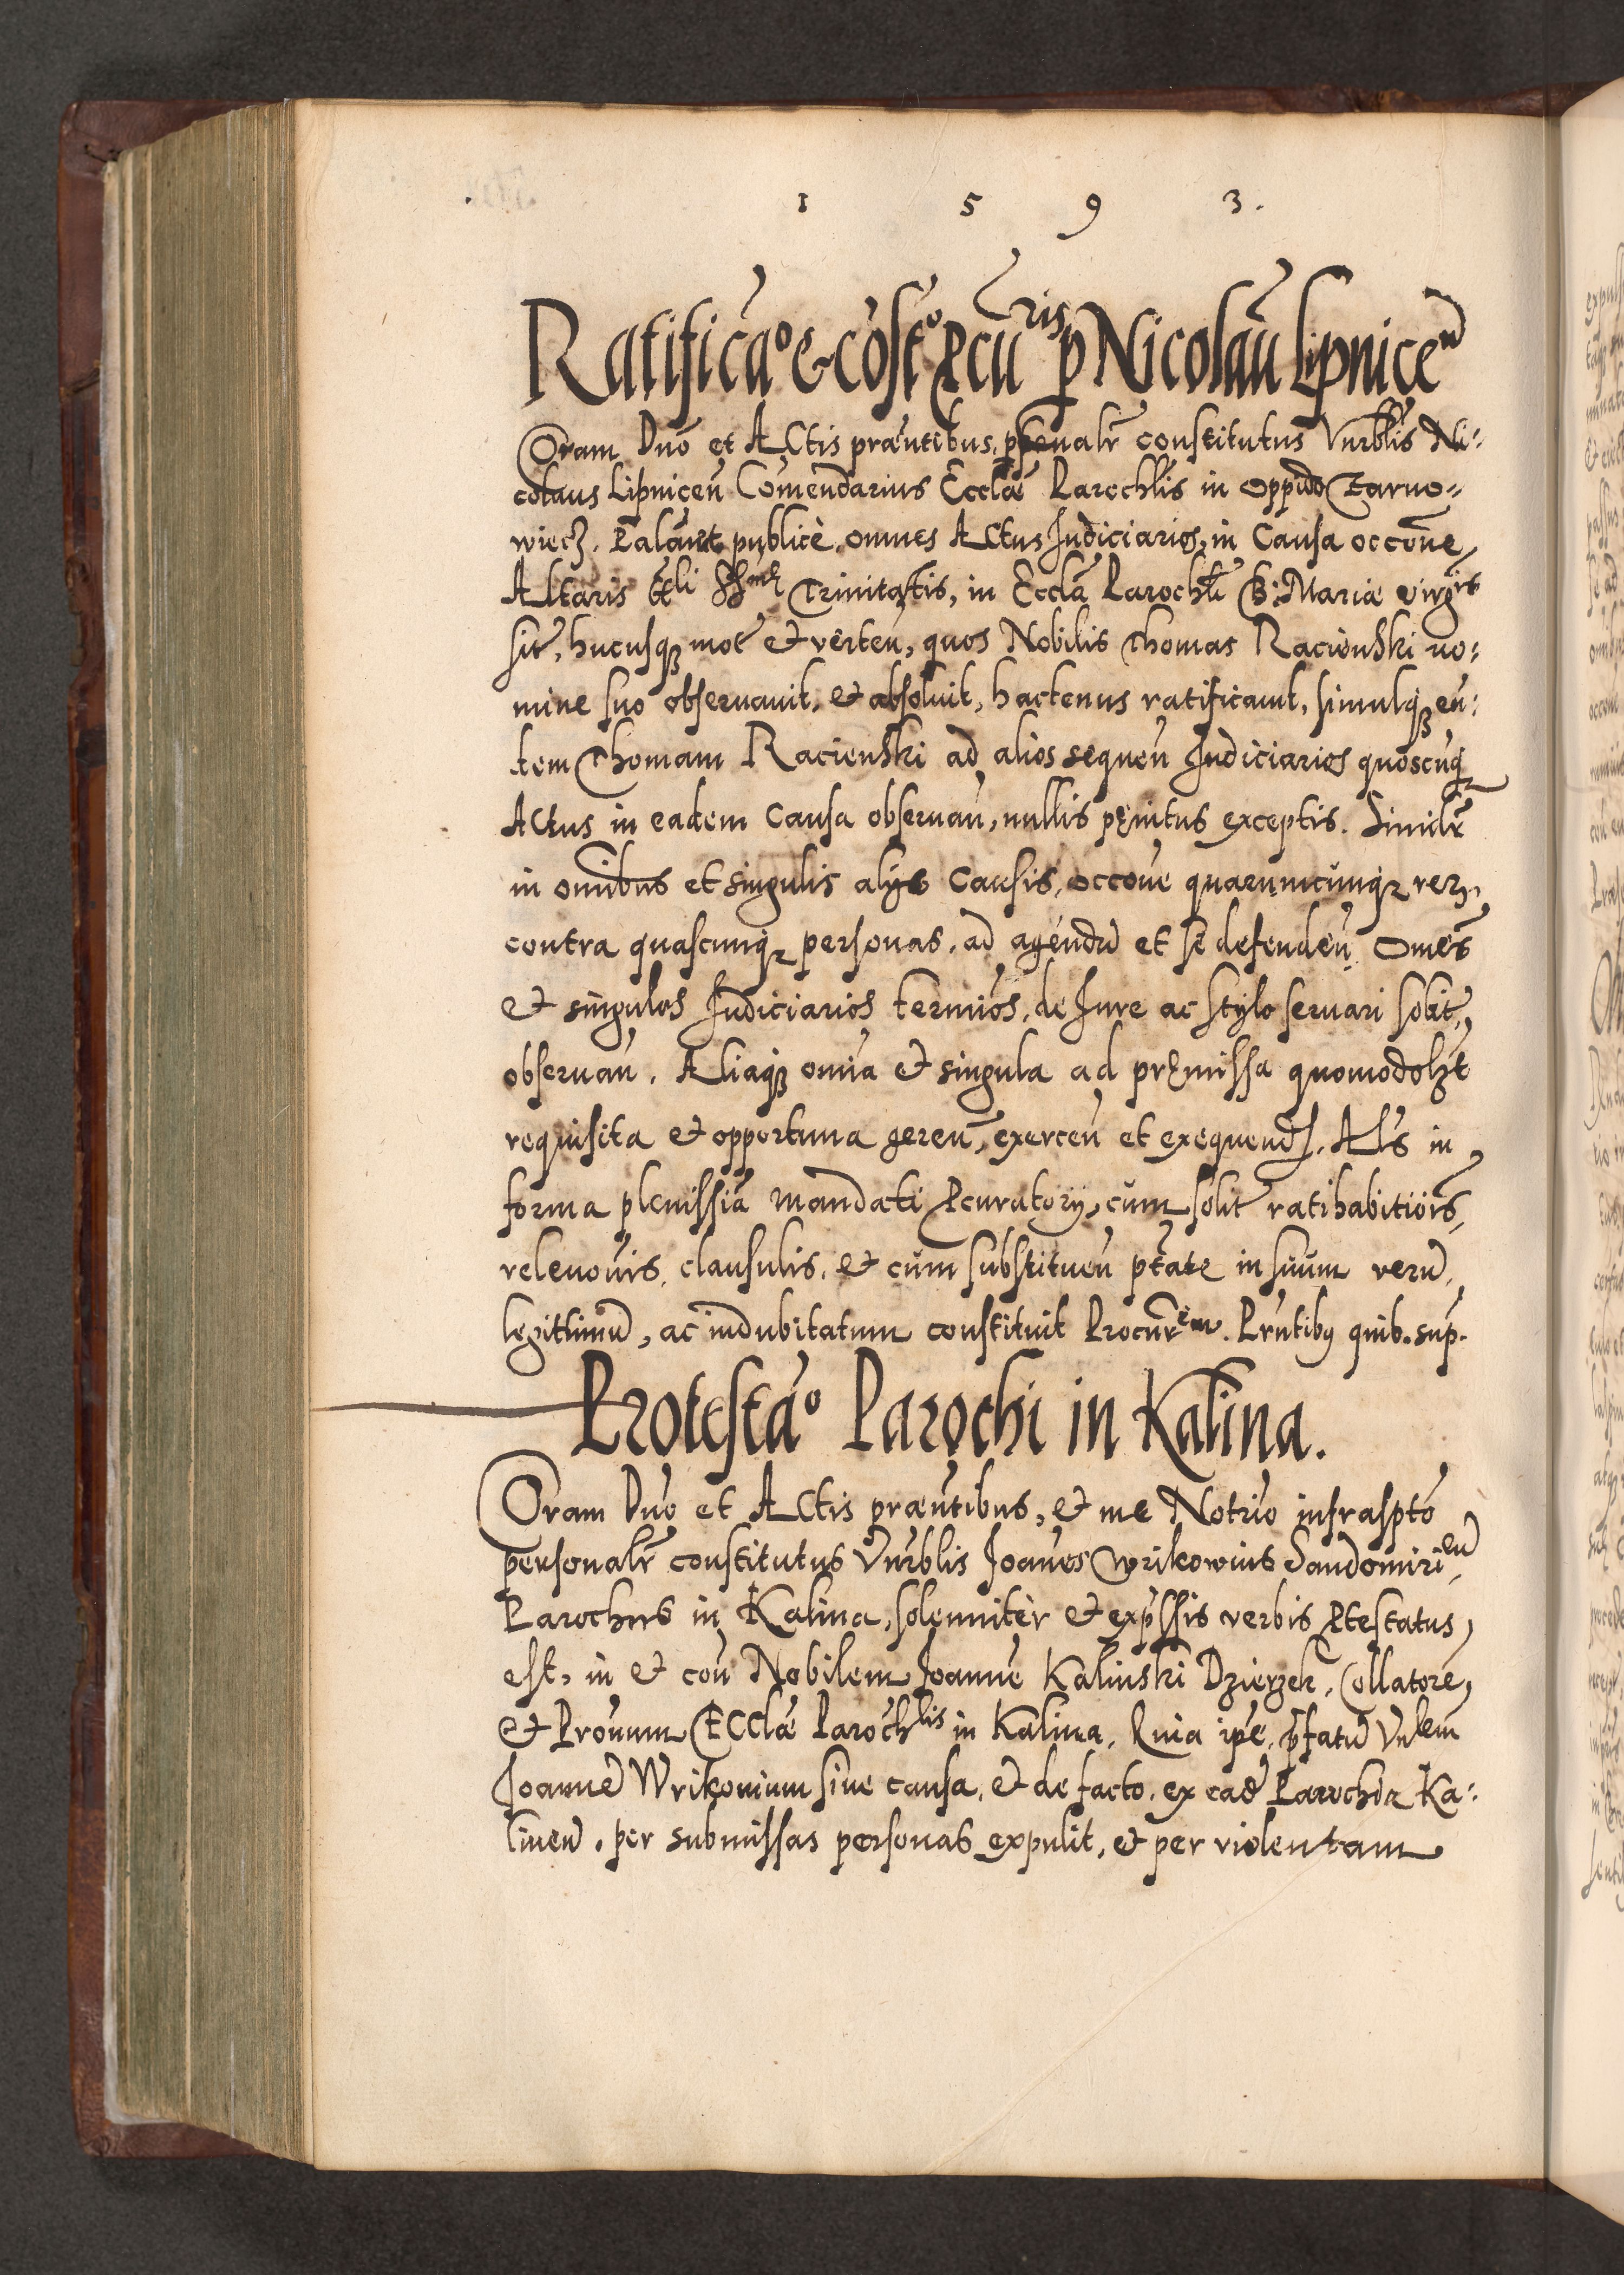 1 5 9 3.
Ratificaõ & cõst° Pcuris p Nicolaũ Lipnicen
Coram Dño et Actis praeñtibus, psonalr̃ constitutus Vnrblis Ni:
colaus Lipniceñ Com̃endarius Ecclae Parochlis in oppido Zarno=
wiecz. Palam et publicè, omnes Actus Judiciarios, in Causa occõne
Altaris tt̃li SSmę Trinitatis, in Eccla Parochli B: Mariae virgis
sit̃, hucusq; mot̃ et verteñ, quos Nobilis Thomas Racienski no:
mine suo obseruauit, et absoluit, hactenus ratificauit, simulq; eũ:
dem Thomam Racienski ad alios sequeñ Judiciarios quoscũq
Actus in eadem Causa obseruañ, nullis pęnitus exceptis. Similr̃
in omĩbus et singulis alijs Causis, occõne quarumcũnq rerũ,
contra quascunq personas, ad agendũ et se defendeñ. Om̃es
et singulos Judiciarios termĩos, de Jure ac stylo seruari solit̃,
obseruañ. Aliaq; om̃ia et singula ad pręmissa quomodolz̃t
requisita et opportuna gereñ, exerceñ et exequend̃. Als̃ in
forma plenissiã mandati Pcuratorij, cum solit̃ ratihabitiõis,
releuõnis, clausulis, et cũm substitueñ ptãte in sũum verũ,
legittimũ, ac indubitatum constituit Procur̃em. Prñtibus quib. sup.
Protestaõ Parochi in Kalina.
Coram Dño et Actis praeñtibus, et me Notrio infraspto
personalr̃ constitutus Vnrblis Joañes Wrikowius Sandomirieñ
Parochus in Kalina, solenniter et exp̃ssis verbis Ptestatus
est, in et coñ Nobilem Joanne Kalinski Dzierzek, Collatorẽ
et Pronum Ecclae Parochlis in Kalina. Quia ipe, p̃fatũ Vnlem
Joannẽ Wrikouium sine causa, et de facto, ex eadẽ Parochia Ka:
lineñ, per submissas personas expulit, et per violentam